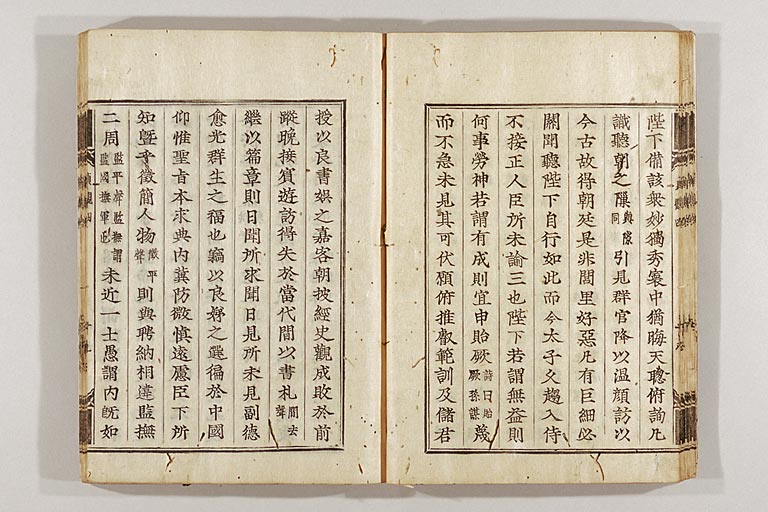 陛下備該衆妙獨秀寰中猶晦天聰俯詢凡
識聽朝之隙與隙同引見群官降以温顔訪以
今古故得朝廷是非閭里好惡凡有巨細必
關聞聽陛下自行如此而今太子久趍入侍
不接正人臣所未諭三也陛下若謂無益則
何事勞神若謂有成則宜申貽厥詩曰貽厥孫謀蔑
而不急未見其可伏願俯推叡範訓及儲君
授以良書娯之嘉客朝披經史觀成敗於前
蹤晚接賓遊訪得失於當代間以書札間去聲
繼以篇章則日聞所未聞日見所未見副德
愈光群生之福也竊以良娣之選徧於中國
仰惟聖旨本求典内冀防微慎遠慮臣下所
知曁乎徵簡人物徵平聲則與聘納相違監撫
二周監平聲監撫謂監國撫軍也未近一士愚謂内旣如